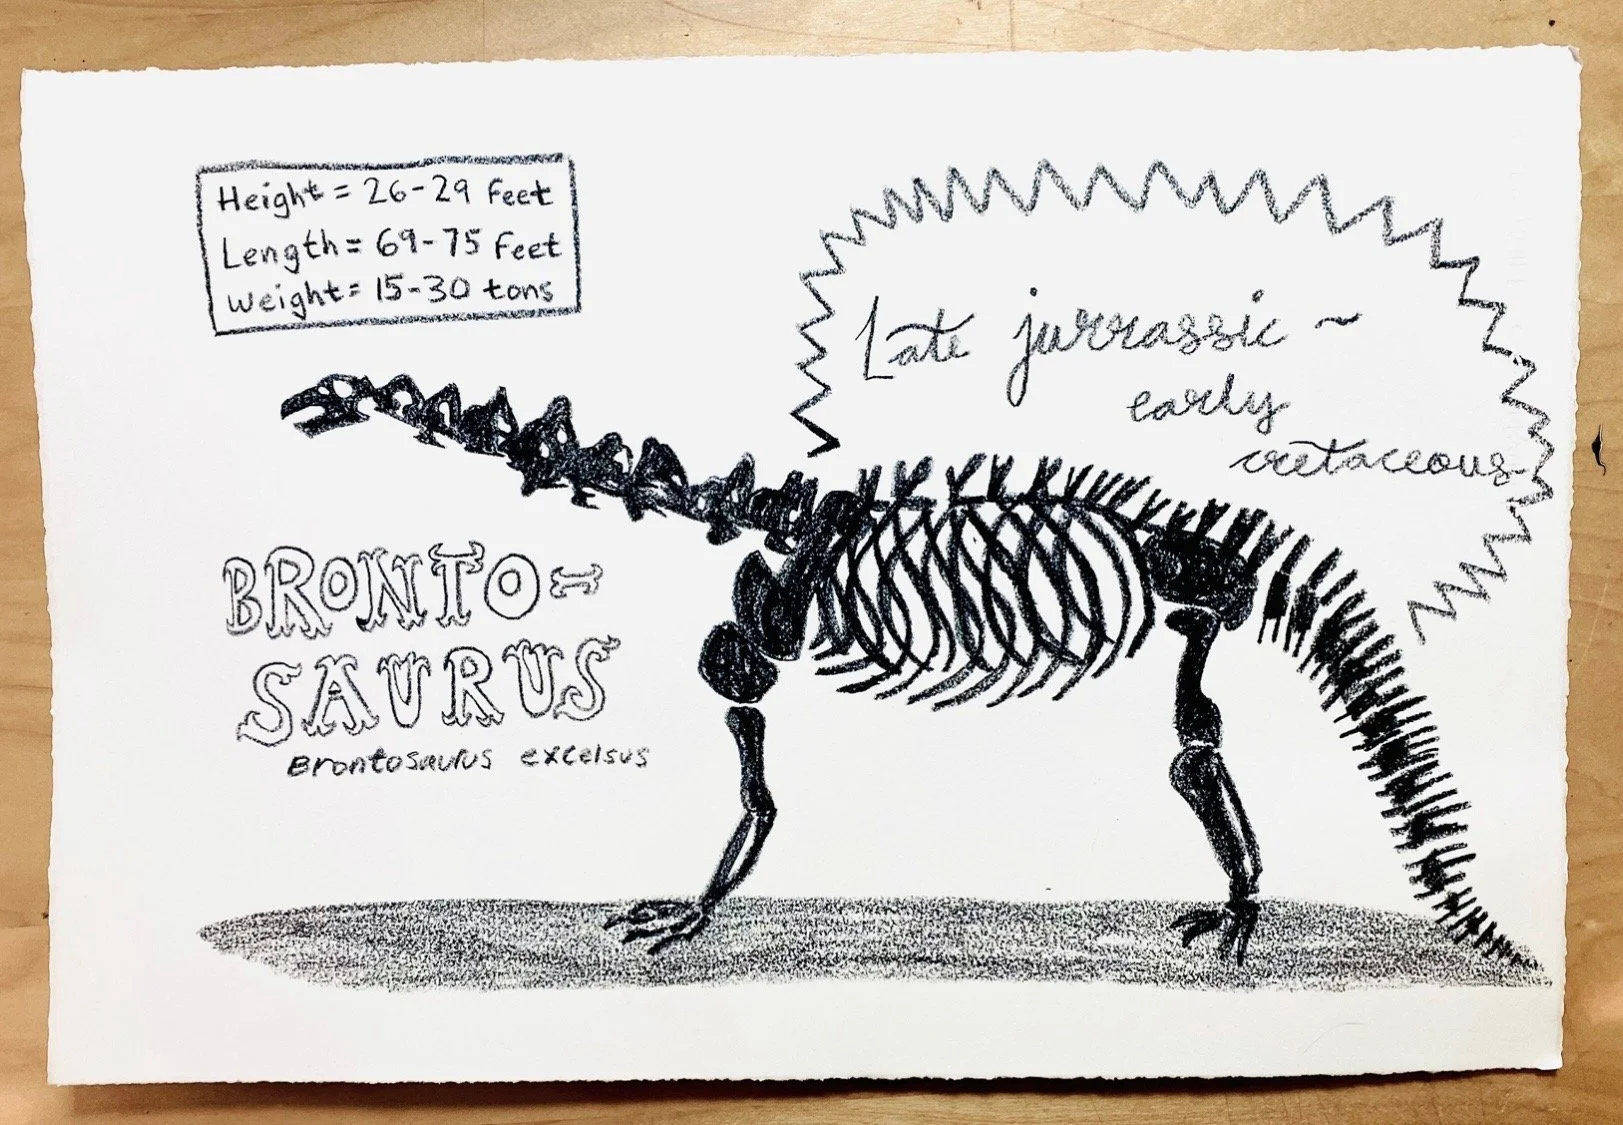 Height = 26-29 Feet
Length = 69-75 Feet
Weight = 15-30 tons
Late jurrassic ~
early
cretaceous
BRONTO-
SAURUS
Brontosaurus excelsus